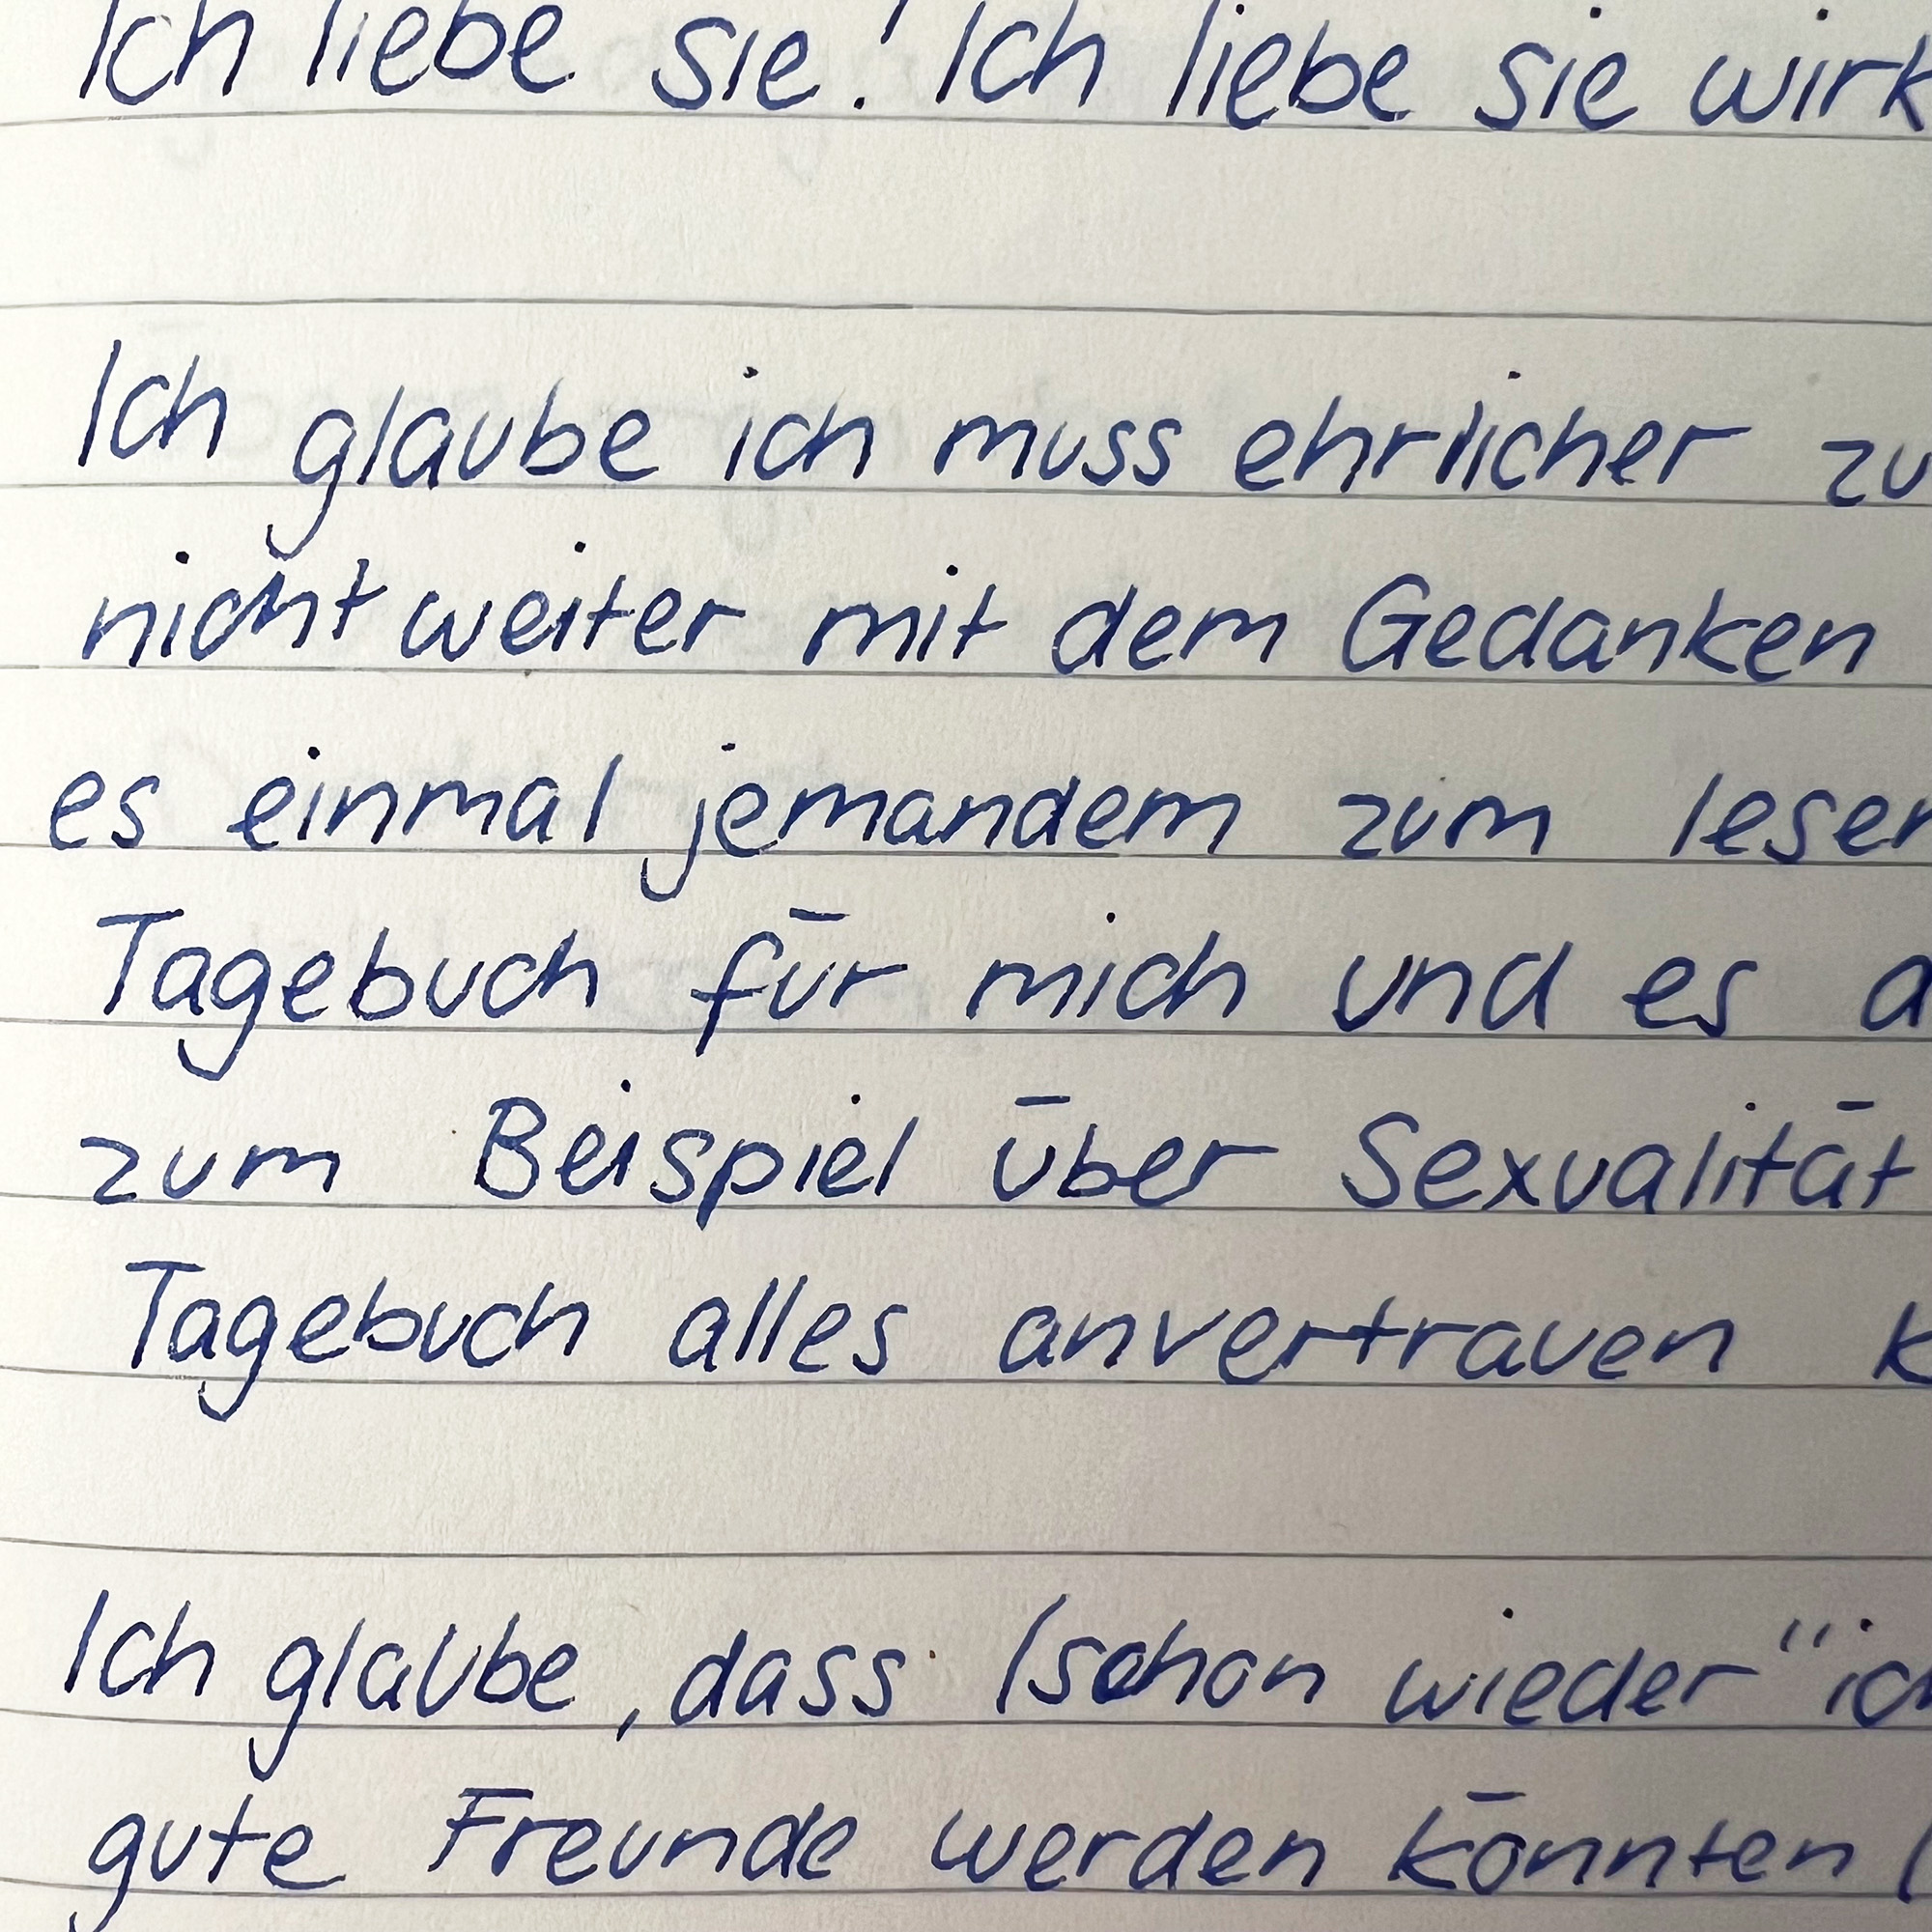 Ich liebe sie! Ich liebe sie wirk
Ich glaube ich muss ehrlicher zu
nicht weiter mit dem Gedanken
es einmal jemandem zum lesen
Tagebuch für mich und es a
zum Beispiel über Sexualität
Tagebuch alles anvertrauen k
Ich glaube, dass (schon wieder "ich
gute Freunde werden könnten (